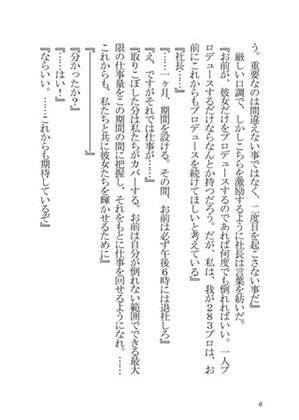 う。重要なのは間違えない事ではなく、二度目を起こさない事だ』
　厳しい口調で、しかしこちらを激励するように社長は言葉を紡いだ。
『お前が、彼女だけをプロデュースするのであれば何度でも倒れればいい。一人プ
ロデュースするだけならなんとか持つだろう。だが、私は、我が２８３プロは、お
前にこれからもプロデュースを続けてほしいと考えている』
『社長……』
『……一ヶ月、期間を設ける。その間、お前は必ず午後６時には退社しろ』
『え、ですがそれでは仕事が……』
『取りこぼした分は私たちがカバーする。お前は自分が倒れない範囲でできる最大
限の仕事量をこの期間の間に把握し、それをもとに仕事を回せるようになれ。……
これからも、私たちと共に彼女たちを輝かせるために』
『―――――――――』
『分かったか？』
『……はい！』
『ならいい。……これからも期待しているぞ』
6